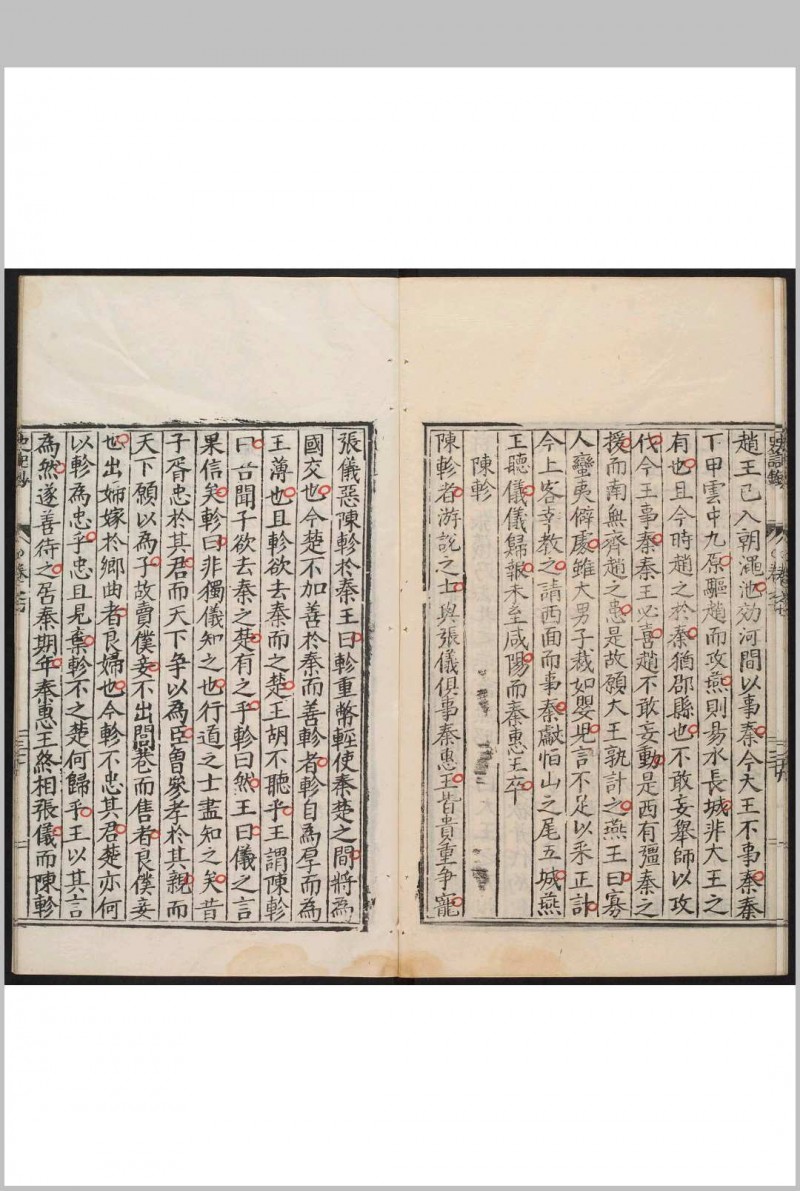 史記鈔
卷之
趙王已入朝澠池効河間以事秦今大王不事秦秦
下甲雲中九原驅趙而攻燕則易水長城非大王之
有也且今時趙之於秦猶郡縣也不敢妄舉師以攻
伐今王事秦秦王必喜趙不敢妄動是西有彊秦之
援而南無齊趙之患是故願大王孰計之燕王曰寡
人蠻夷僻處雖大男子裁如嬰兒言不足以采正計
今上客幸教之請西面而事秦獻恒山之尾五城燕
王聽儀儀歸報未至咸陽而秦惠王卒
陳軫
陳軫者游說之士與張儀俱事秦惠王皆貴重爭寵
張儀惡陳軫於秦王曰軫重幣輕使秦楚之間將為
國交也今楚不加善於秦而善軫者軫自為厚而為
王薄也且軫欲去秦而之楚王胡不聽乎王謂陳軫
曰吾聞子欲去秦之楚有之乎軫曰然王曰儀之言
果信矣軫曰非獨儀知之也行道之士盡知之矣昔
子胥忠於其君而天下爭以為臣曾參孝於其親而
天下願以為子故賣僕妾不出閭巷而售者良僕妾
也出婦嫁於鄉曲者良婦也今軫不忠其君楚亦何
以軫為忠乎忠且見棄軫不之楚何歸乎王以其言
為然遂善待之居秦期年秦惠王終相張儀而陳軫